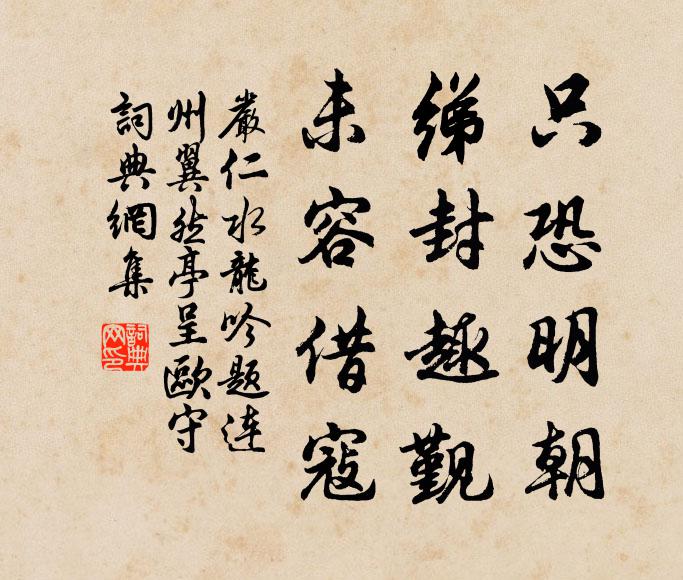 只恐明朝
綈封趣觀
未容借寇
嚴仁水龍吟題連
州翼然亭呈歐守
詞典網集
詞典網印